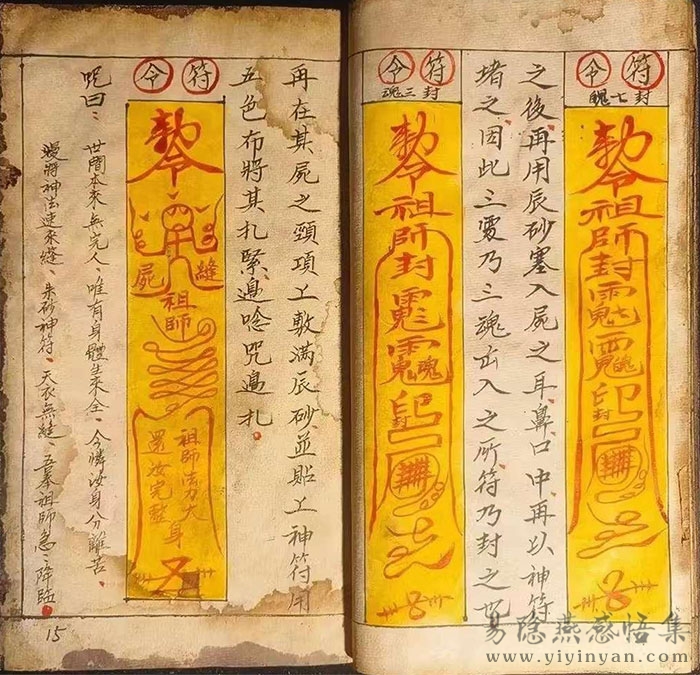 符令
封七魄
勅令祖師封
魄
印
封
之後再用辰砂塞入屍之耳鼻口中再以神符
堵之因此三處乃三魂出入之所符乃封之也
符令
封三魂
勅令祖師封
魂
印
封
再在其屍之頸項上敷滿辰砂並貼上神符用
五色布將其扎緊邊唸咒邊扎。
符令
勅令
縫屍
祖師
祖師法力大
還汝完整身
呪曰：世間本來無完人、唯有身體生來全、今憐汝身分離苦、
將神法速來縫、朱砂神符、天衣無縫、五峯祖師急々降臨。
15
易隐燕感悟集
www.yiyinyan.com